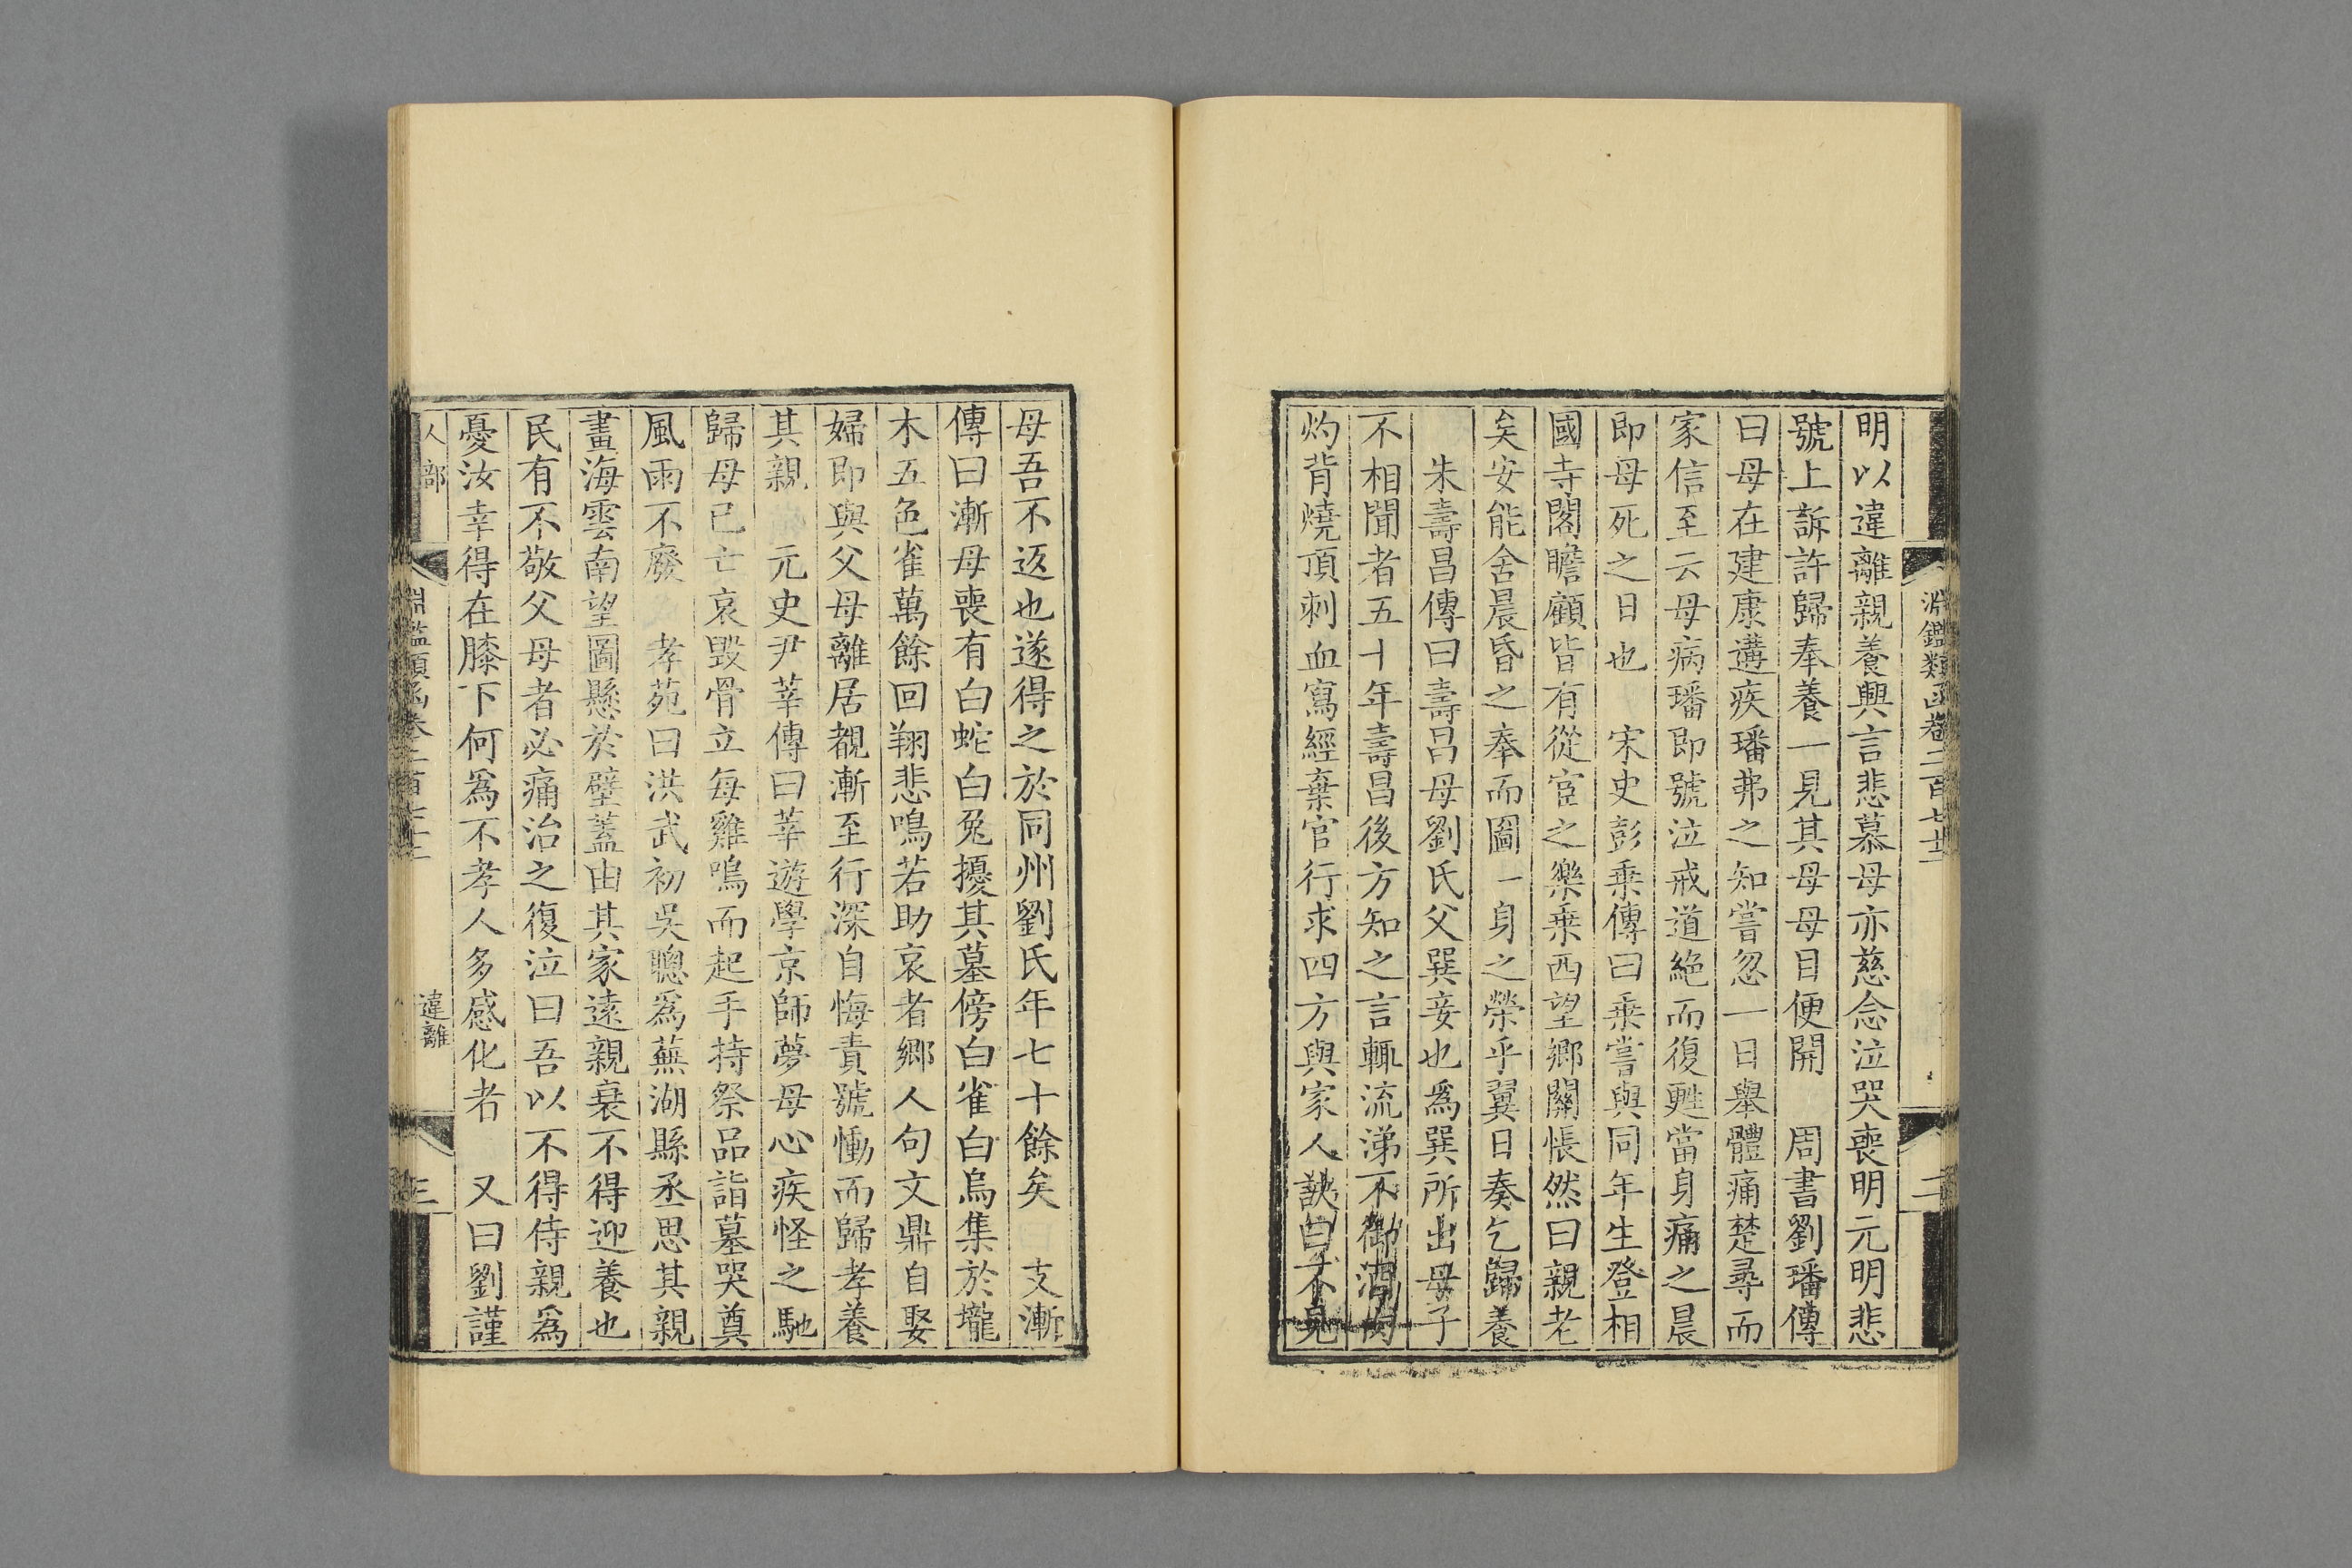 淵鑑類函卷二百七十二
二
明以違離親養興言悲慕母亦慈念泣哭喪明元明悲
號上訴許歸奉養一見其母母目便開　周書劉璠傳
曰母在建康遘疾璠弗之知嘗忽一日舉體痛楚尋而
家信至云母病璠即號泣戒道絕而復甦當身痛之晨
即母死之日也　宋史彭乘傳曰乘嘗與同年生登相
國寺閣瞻顧皆有從宦之樂乘西望鄉關悵然曰親老
矣安能舍晨昏之奉而圖一身之榮乎翼日奏乞歸養
朱壽昌傳曰壽昌母劉氏父巽妾也爲巽所出母子
不相聞者五十年壽昌後方知之言輒流涕不御酒肉
灼背燒頂刺血寫經棄官行求四方與家人訣曰不見
母吾不返也遂得之於同州劉氏年七十餘矣　支漸
傳曰漸母喪有白蛇白兔擾其墓傍白雀白烏集於壠
木五色雀萬餘回翔悲鳴若助哀者鄉人句文鼎自娶
婦即與父母離居覩漸至行深自悔責號慟而歸孝養
其親　元史尹莘傳曰莘遊學京師夢母心疾怪之馳
歸母已亡哀毀骨立每雞鳴而起手持祭品詣墓哭奠
風雨不廢　孝苑曰洪武初吳聰爲蕪湖縣丞思其親
畫海雲南望圖懸於壁蓋由其家遠親衰不得迎養也
民有不敬父母者必痛治之復泣曰吾以不得侍親爲
憂汝幸得在膝下何爲不孝人多感化者　又曰劉謹
人部
淵鑑類函卷二百七十二
違離
三